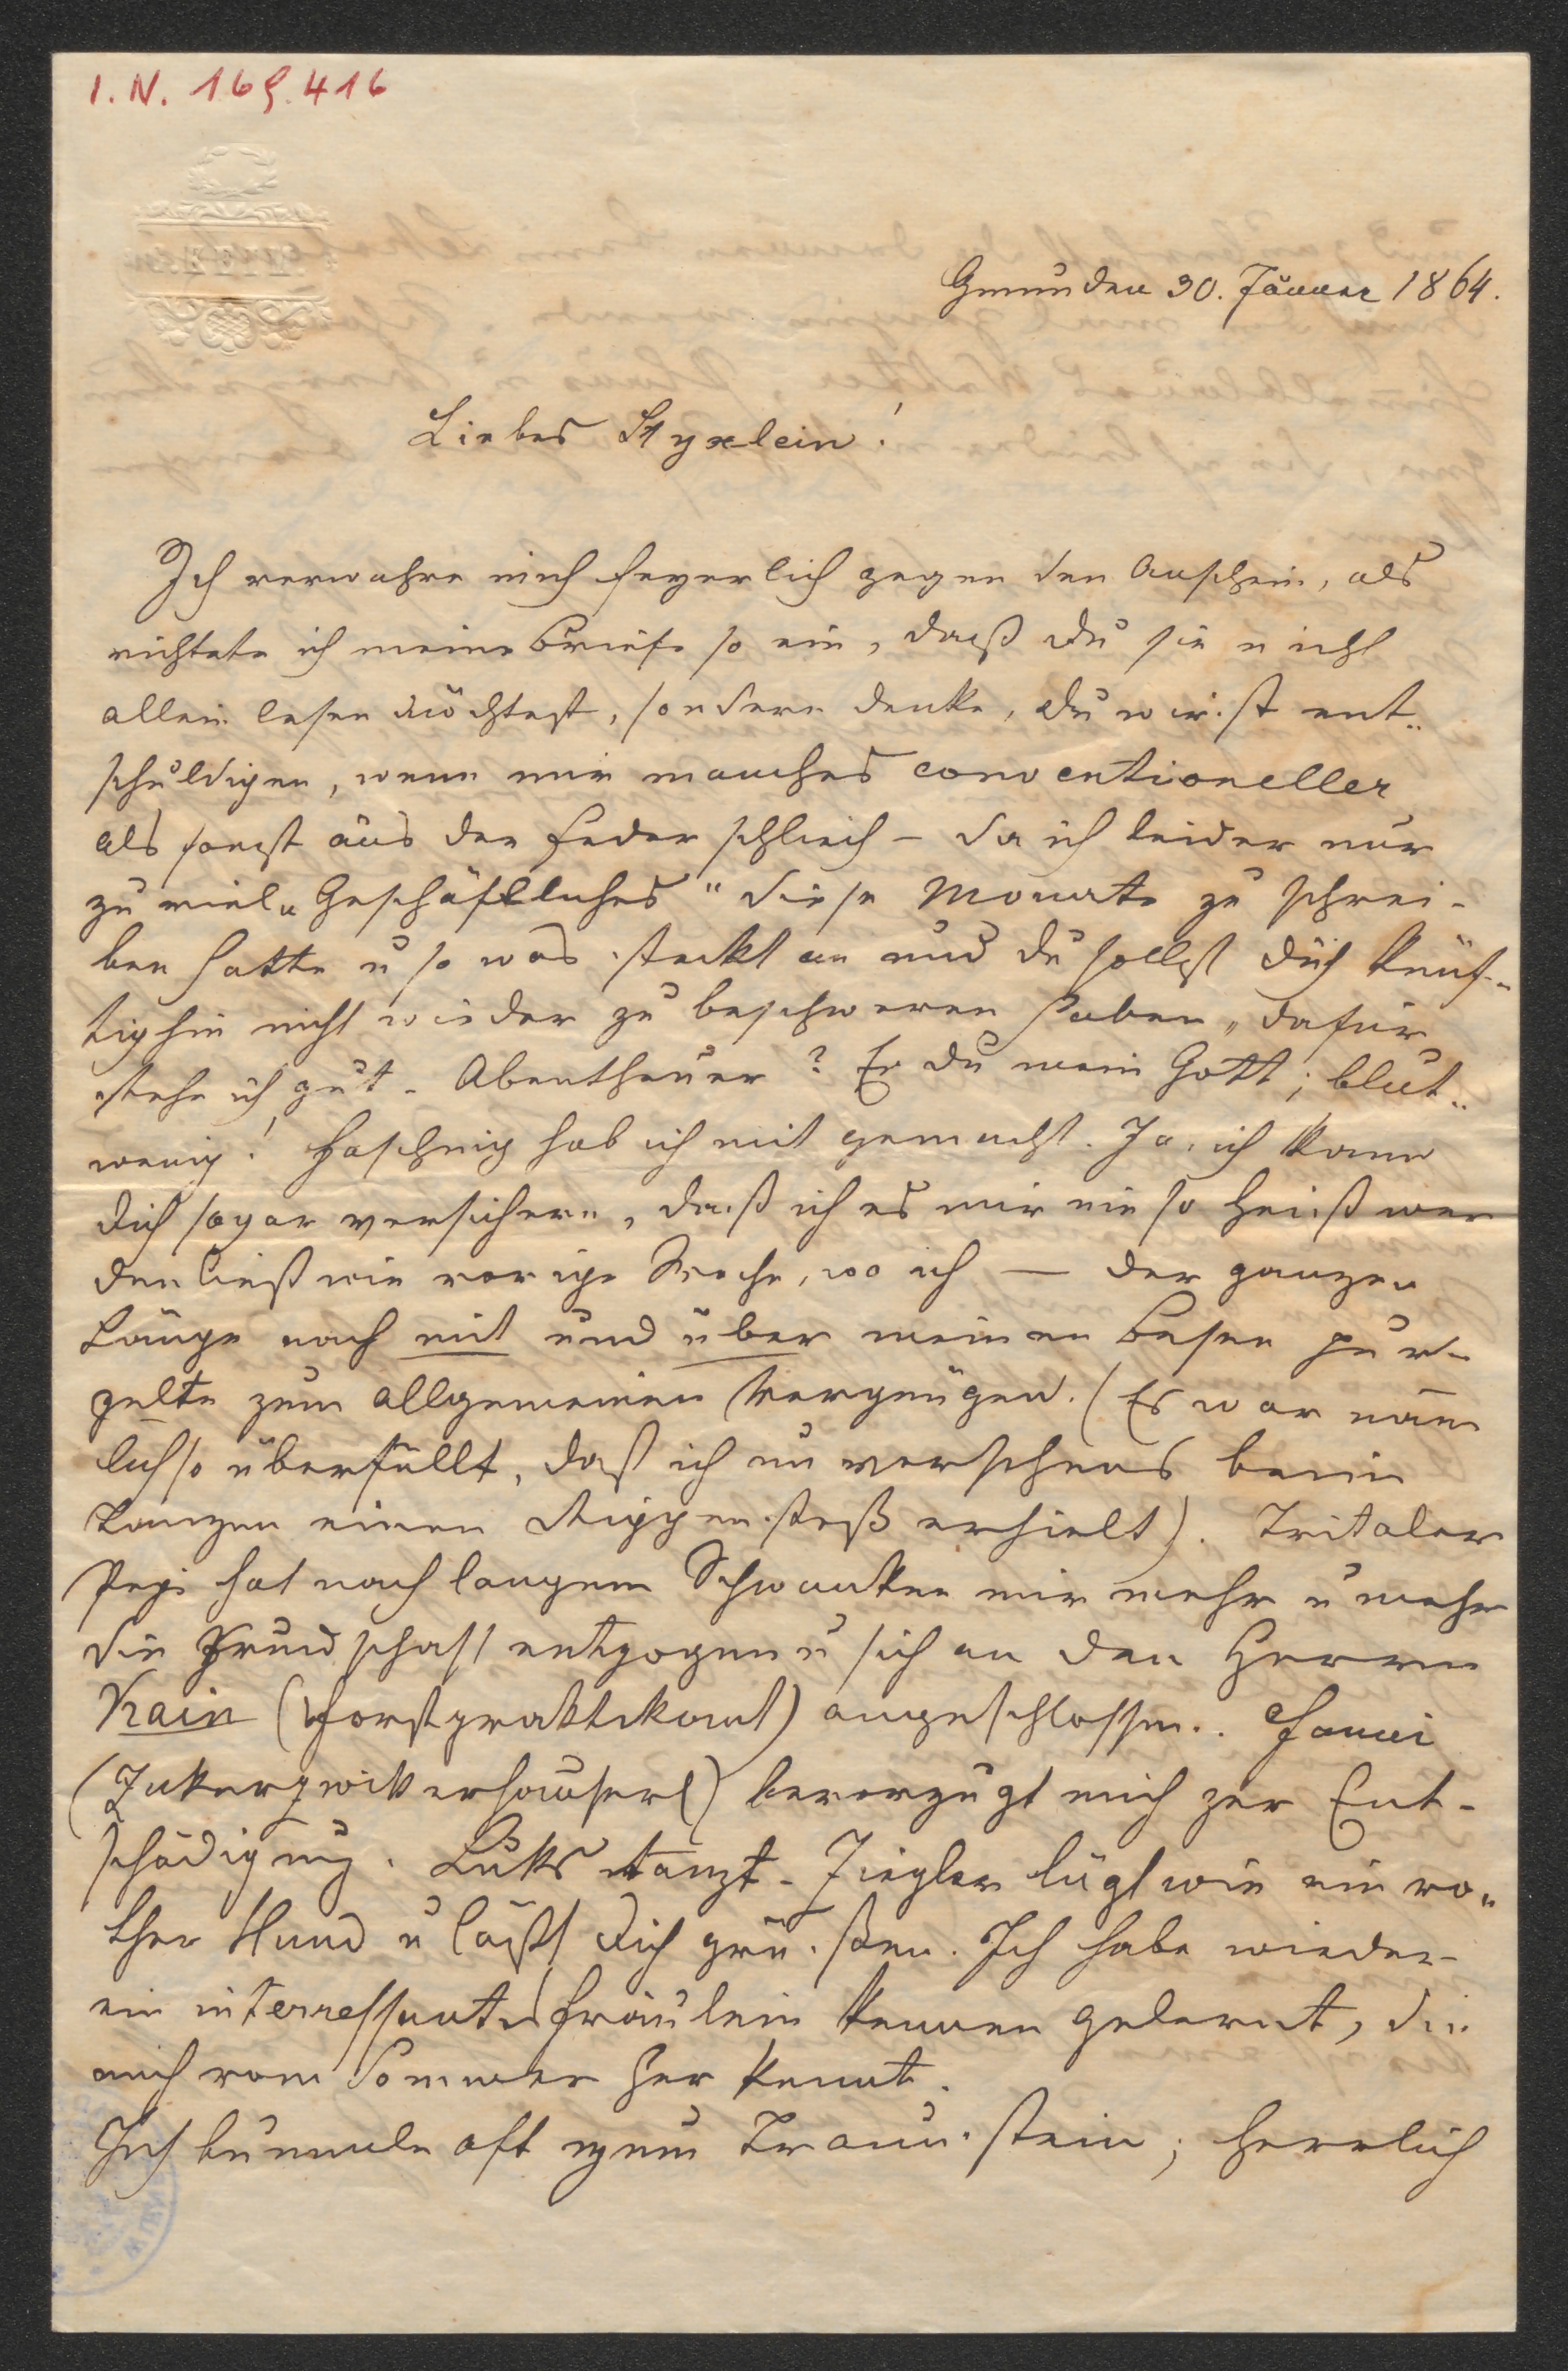 I. N. 169.416
Gmunden 30. Jänner 1864.
Liebes Styxlein!
Ich verwahre mich feyerlich gegen den Anschein, als
richtete ich meine Briefe so ein, daß du sie nicht
allein lesen möchtest, sondern denke, du wirst ent„
schuldigen, wenn mir manches conventioneller
als sonst aus der Feder schlich – da ich leider nur
zu viel „Geschäftliches" diese Monate zu schrei-
ben hatte u so was steckt an und du sollst dich künf„
tighin nicht wieder zu beschweren haben, dafür
stehe ich gut. Abentheuer? Er du mein Gott; blut„
wenig! Fasching hab ich mit gemacht. Ja, ich kann
dich sogar versichern, daß ich es mir nie so heiß wer
den ließ wie vorige Woche, wo ich — der ganzen
Länge nach mit und über meinen Besen pur-
zelte zum allgemeinen Vergnügen. (Es war näm
lich so überfüllt, daß ich unversehens beim
tanzen einen Rippenstoß erhielt). Tritaler
Pepi hat nach langem Schwanken mir mehr u mehr
die Freundschaft entzogen u sich an den Herrn
Kain (Forstpraktikant) angeschlossen. Fanni
(Zukerzwikerhauserl) bevorzugt mich zur Ent-
schädigung. Luks tanzt – Ziegler lügt wie ein ro„
ther Hund u läßt dich grüßen. Ich habe wieder
ein interressantes Fräulein kennen gelernt, die
mich vom Sommer her kennt.
Ich bummle oft zum Traunstein; herrlich